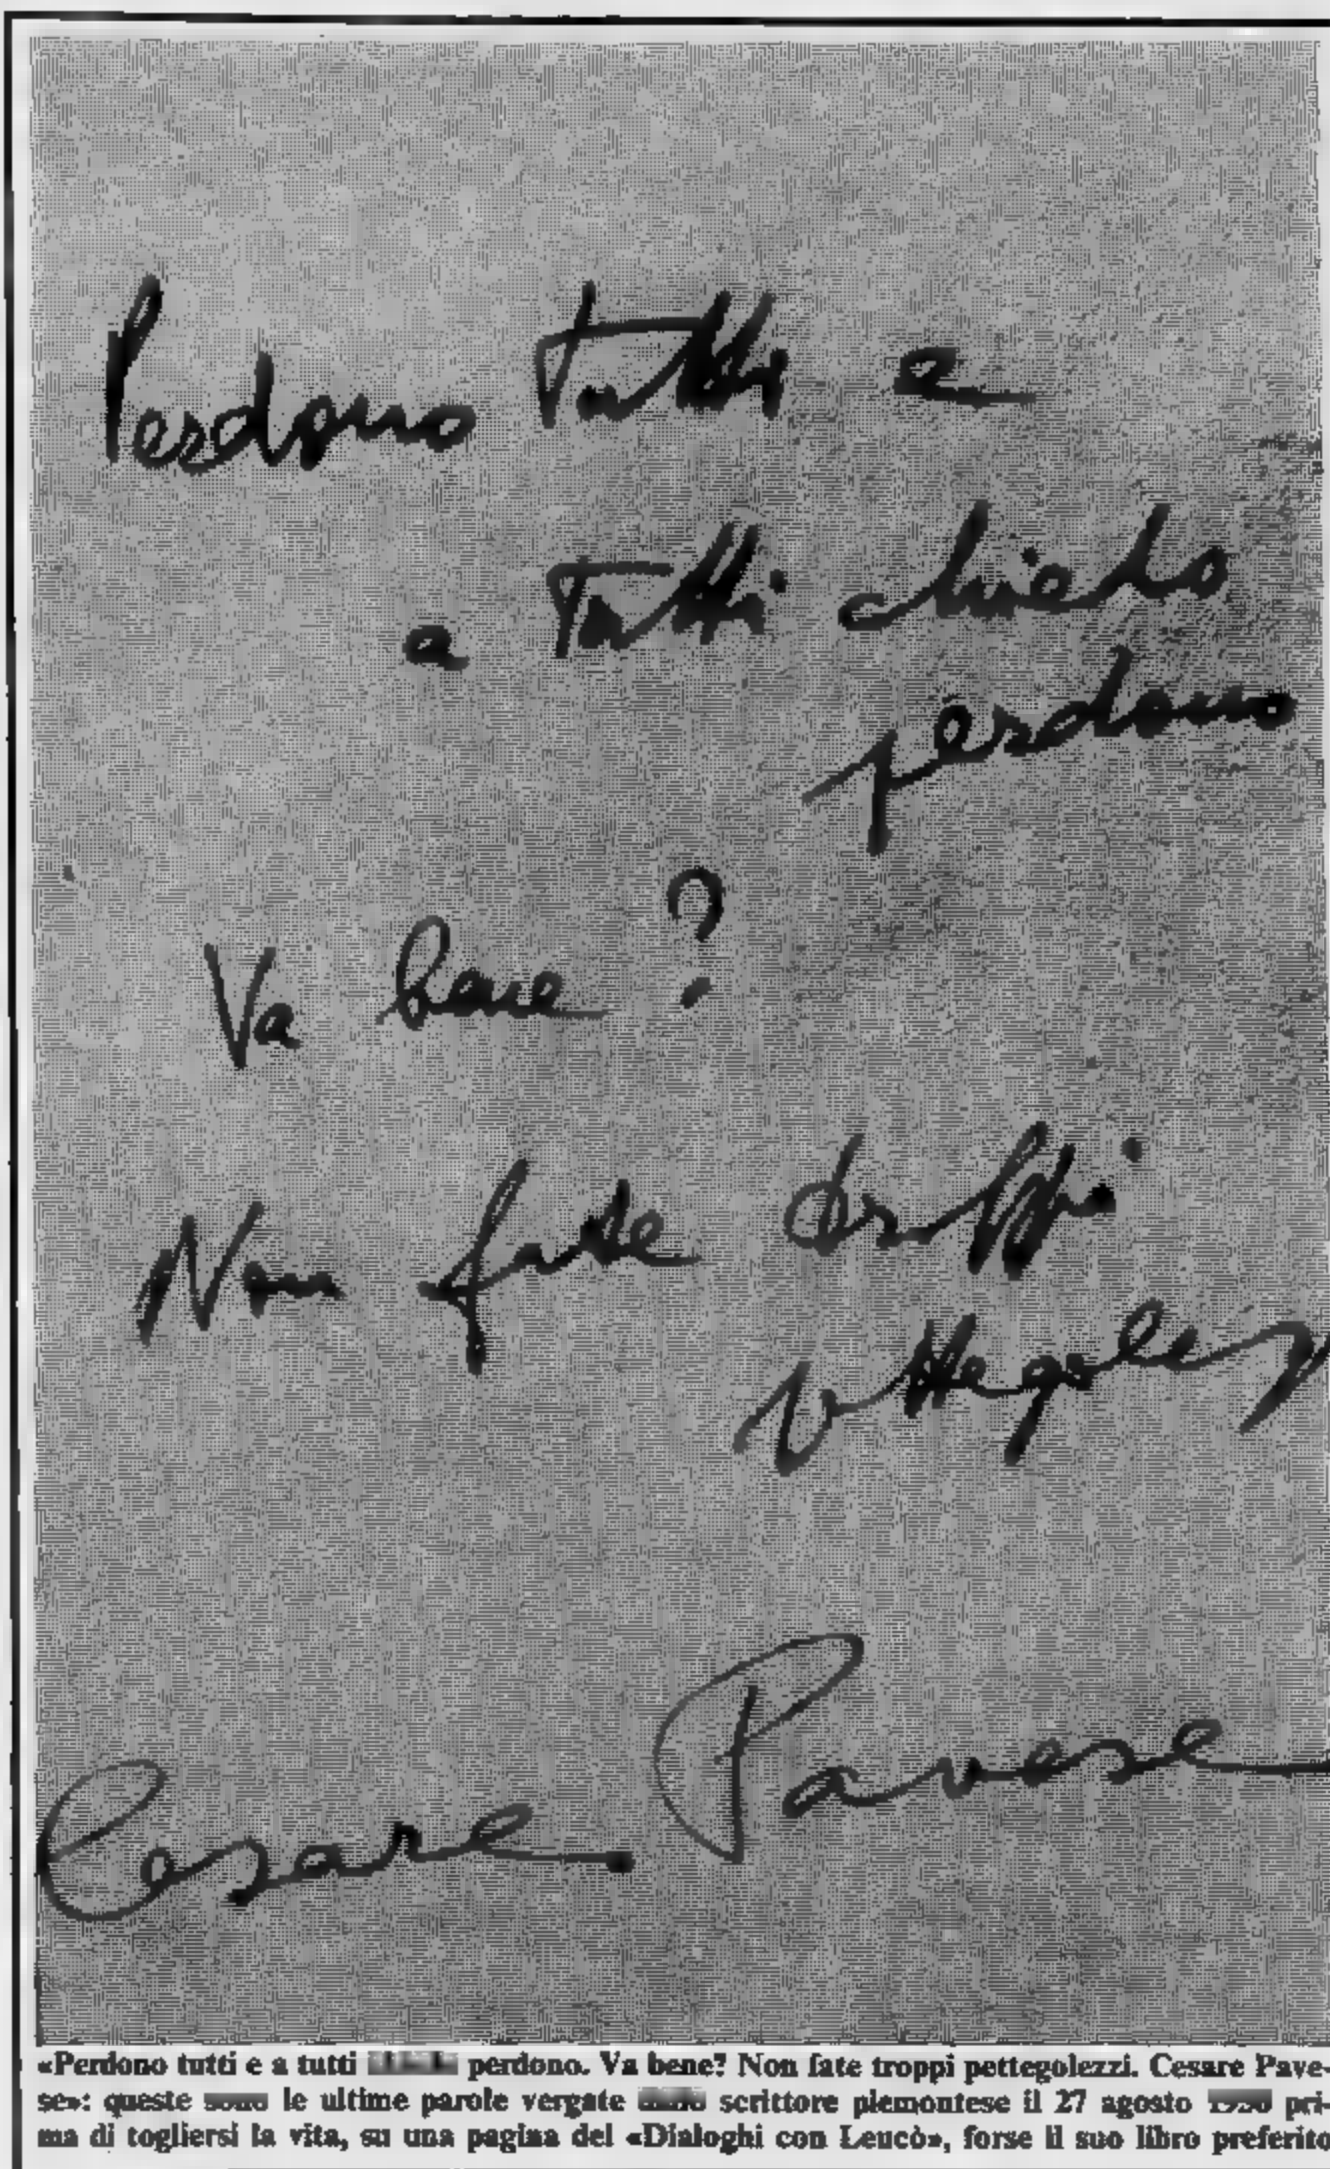 Perdono tutti e
a tutti chiedo
perdono
Va bene?
Non fate troppi
pettegolezzi
Cesare Pavese
«Perdono tutti e a tutti perdono. Va bene? Non fate troppi pettegolezzi. Cesare Pave-
se»: queste sono le ultime parole vergate scrittore piemontese il 27 agosto 1950 pri-
ma di togliersi la vita, su una pagina del «Dialoghi con Leucò», forse il suo libro preferito